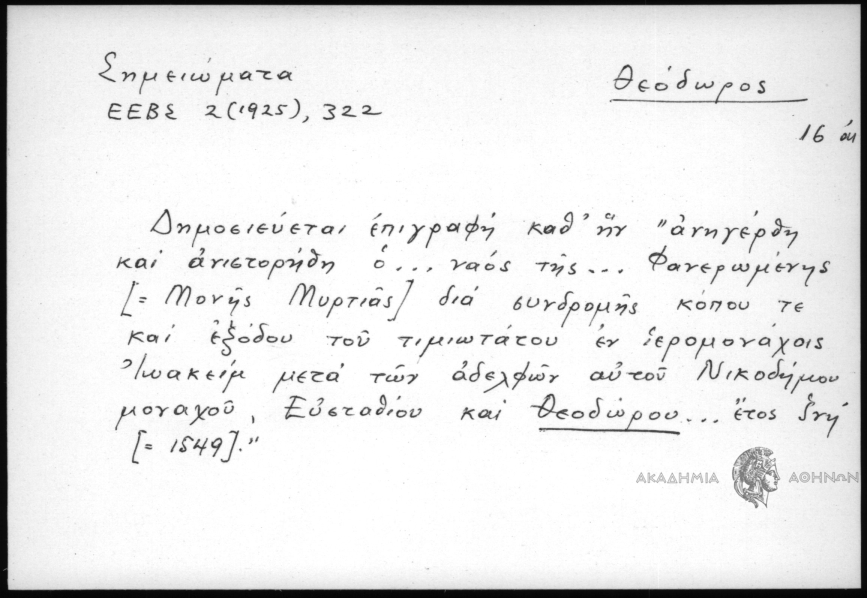 Σημειώματα
ΕΕΒΣ 2(1925), 322
Θεόδωρος
16
Δημοσιεύεται ἐπιγραφή καθ' ἥν "ἀνηγέρθη
καί ἀνιστορήθη ὁ... ναός τῆς... Φανερωμένης
[= Μονῆς Μυρτιᾶς] διά συνδρομῆς κόπου τε
καί ἐξόδου τοῦ τιμιωτάτου ἐν ἱερομονάχοις
Ἰωακείμ μετά τῶν ἀδελφῶν αὐτοῦ Νικοδήμου
μοναχοῦ, Εὐσταθίου καί Θεοδώρου... ἔτος
[= 1549]."
ΑΚΑΔΗΜΙΑ ΑΘΗΝΩΝ